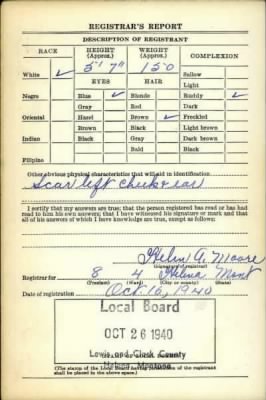 REGISTRAR'S REPORT
DESCRIPTION OF REGISTRANT
RACE HEIGHT (Approx.) WEIGHT (Approx.) COMPLEXION
White ✓ 5' 7" 150 Sallow
EYES HAIR Light
Negro Blue ✓ Blonde Ruddy ✓
Gray Red Dark
Oriental Hazel Brown ✓ Freckled
Brown Black Light brown
Indian Black Gray Dark brown
Bald Black
Filipino
Other obvious physical characteristics that will aid in identification
Scar left cheek & ear
I certify that my answers are true; that the person registered has read or has had
read to him his own answers; that I have witnessed his signature or mark and that
all of his answers of which I have knowledge are true, except as follows:
Helen G. Moore
(Signature of registrar)
Registrar for 8 4 Helena Mont
(Precinct) (Ward) (City or county) (State)
Date of registration Oct 16, 1940
Local Board
OCT 26 1940
Lewis and Clark County
Helena, Montana
(The stamp of the Local Board having jurisdiction of the registrant
shall be placed in the above space.)